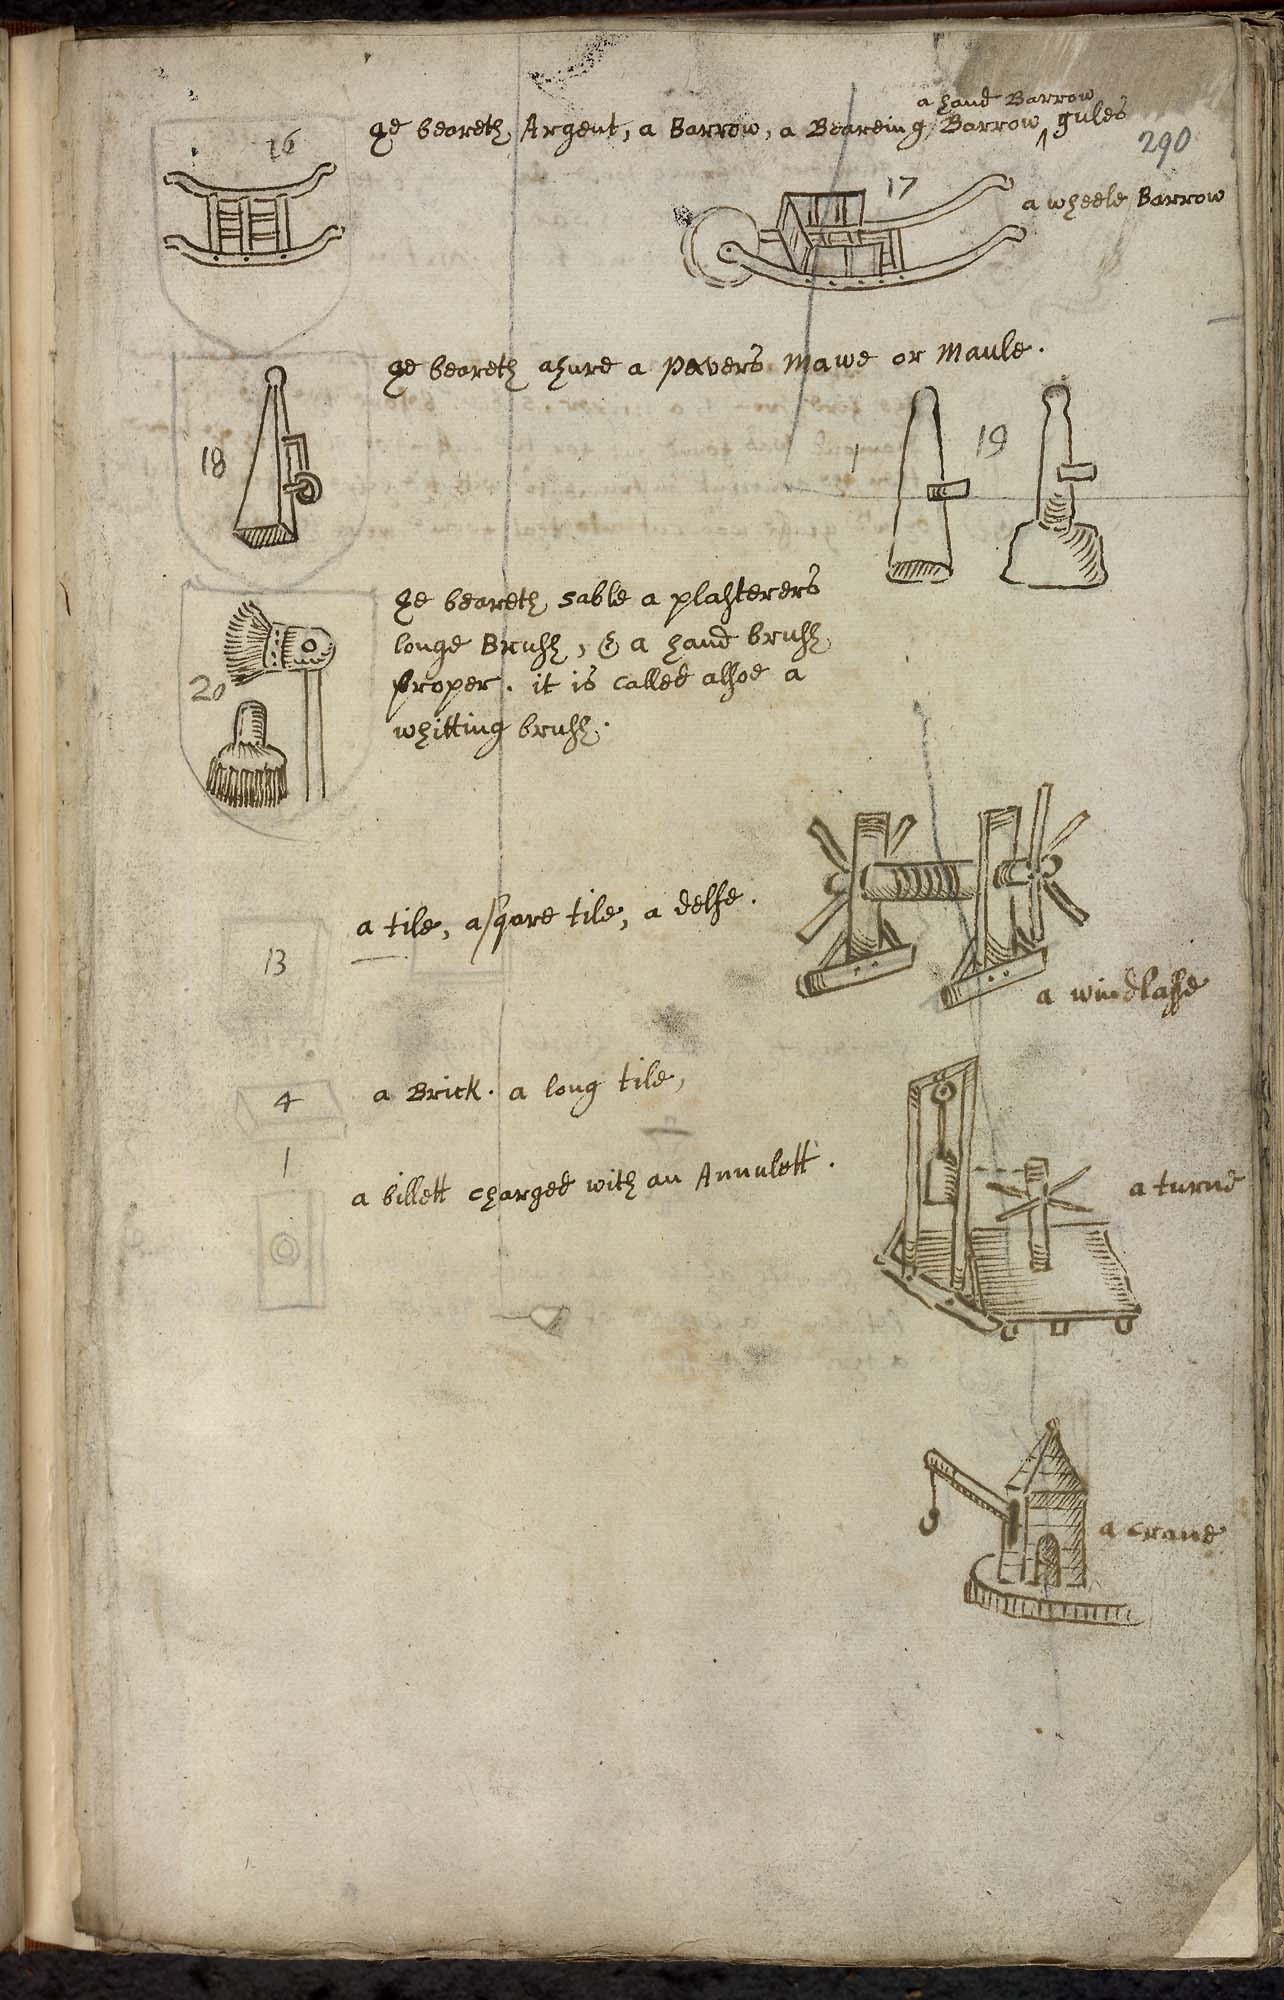 a hand Barrow
He beareth, Argent, a Barrow, a Beareing Barrow ^ gules
290
16
17
a wheele Barrow
He beareth azure a pavers Mawe or Maule.
18
19
He beareth, sable a plasterers
longe Brush, & a hand brush
proper. it is called alsoe a
whitting brush.
20
a tile, a sqare tile, a delfe.
13
a windlasse
a Brick. a long tile,
4
1
a billett charged with an Annulett.
a turne
a crane